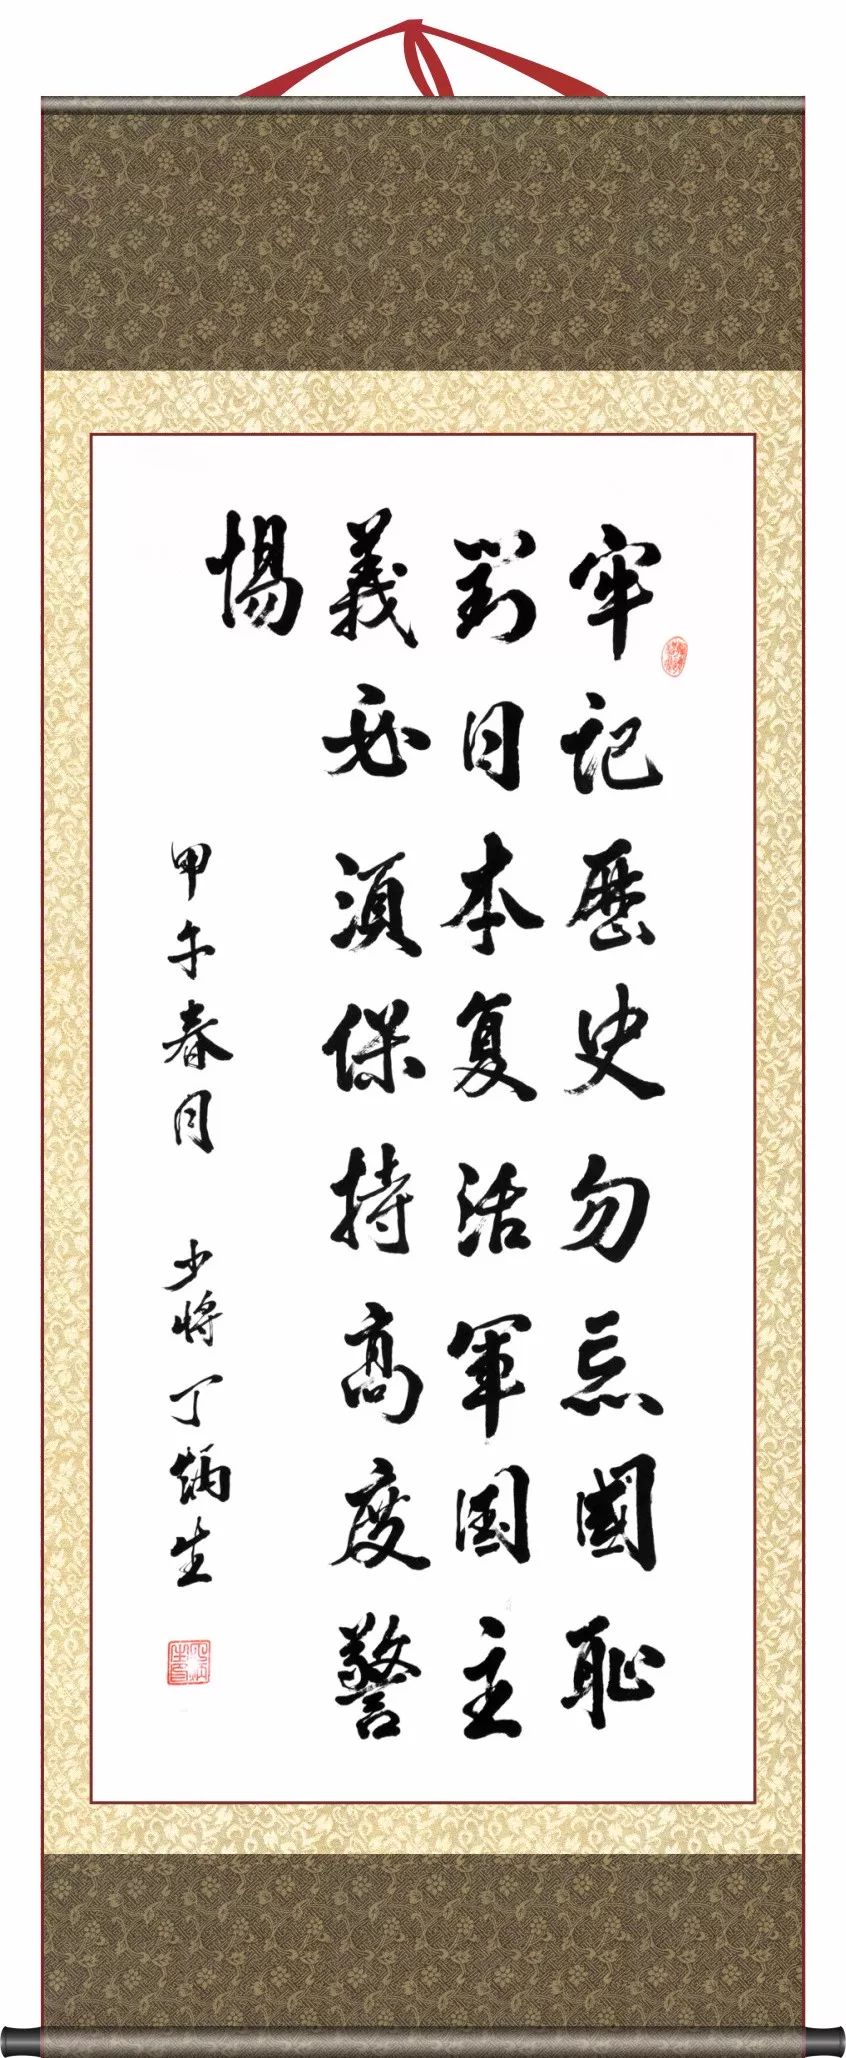 牢记歷史勿忘國恥
对日本复活軍国主
義必须保持高度警
惕
甲午春月 少将丁炳生